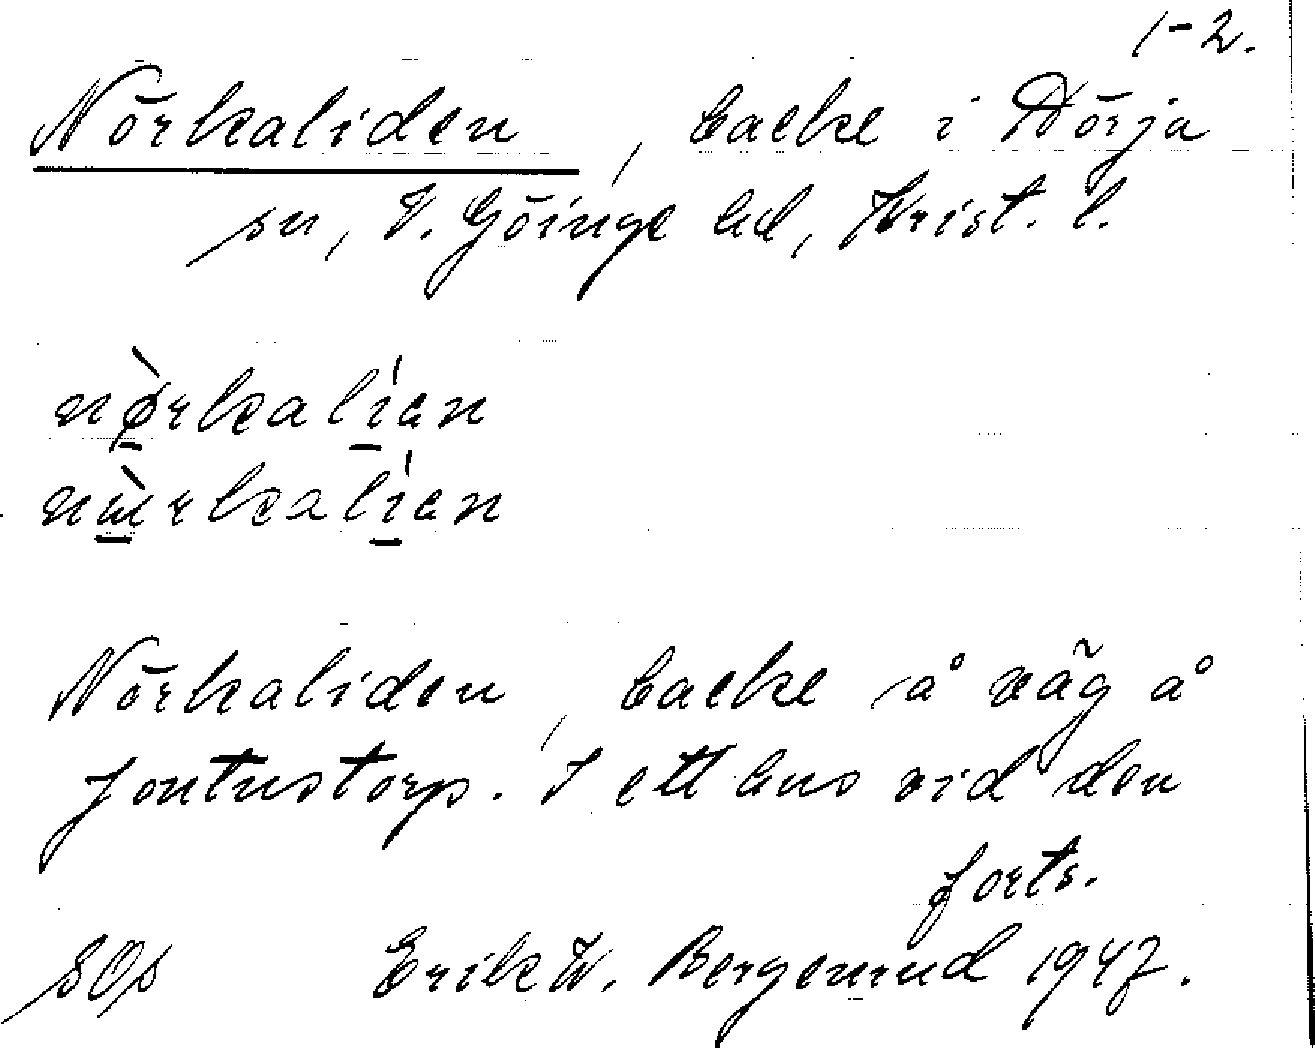 1-2.
Nörkaliden, backe i Nörja
sn, V. Göinge hd, Krist. l.
nø̀rkalían
nœ̀rkalían
Nörkaliden, backe å väg å
Jontustorp. I ett hus vid den
forts.
SOs Erik W. Bergenrud 1947.